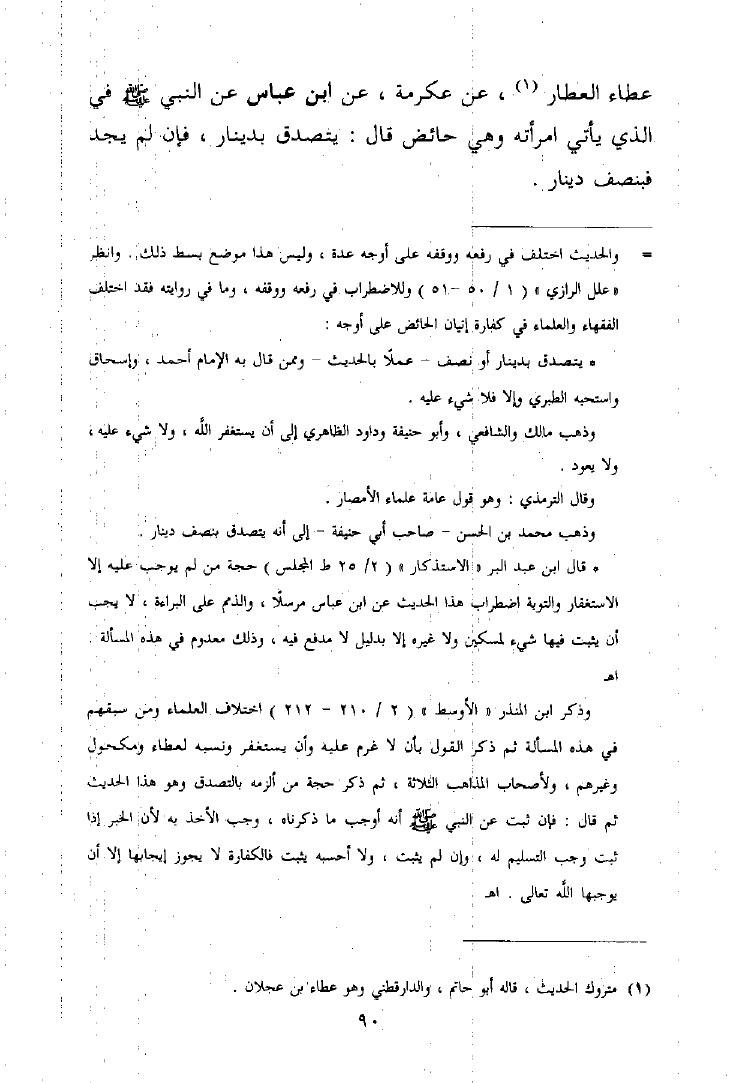 عطاء العطار (١) ، عن عكرمة ، عن ابن عباس عن النبي ﷺ في
الذي يأتي امرأته وهي حائض قال : يتصدق بدينار ، فإن لم يجد
فبنصف دينار .
= والحديث اختلف في رفعه ووقفه على أوجه عدة ، وليس هذا موضع بسط ذلك . وانظر
« علل الرازي » ( ١ / ٥٠ – ٥١ ) وللاضطراب في رفعه ووقفه ، وما في روايته فقد اختلف
الفقهاء والعلماء في كفارة إتيان الحائض على أوجه :
* يتصدق بدينار أو نصف – عملًا بالحديث – وممن قال به الإمام أحمد ، وإسحاق
واستحبه الطبري وإلا فلا شيء عليه .
وذهب مالك والشافعي ، وأبو حنيفة وداود الظاهري إلى أن يستغفر اللَّه ، ولا شيء عليه ،
ولا يعود .
وقال الترمذي : وهو قول عامة علماء الأمصار .
وذهب محمد بن الحسن – صاحب أبي حنيفة – إلى أنه يتصدق بنصف دينار .
* قال ابن عبد البر « الاستذكار » ( ٢ / ٢٥ ط المجلس ) حجة من لم يوجب عليه إلا
الاستغفار والتوبة اضطراب هذا الحديث عن ابن عباس مرسلًا ، والذمم على البراءة ، لا يجب
أن يثبت فيها شيء لمسكين ولا غيره إلا بدليل لا مدفع فيه ، وذلك معدوم في هذه المسألة .
اهـ
وذكر ابن المنذر « الأوسط » ( ٢ / ٢١٠ – ٢١٢ ) اختلاف العلماء ومن سبقهم
في هذه المسألة ثم ذكر القول بأن لا غرم عليه وأن يستغفر ونسبه لعطاء ومكحول
وغيرهم ، ولأصحاب المذاهب الثلاثة ، ثم ذكر حجة من ألزمه بالتصدق وهو هذا الحديث
ثم قال : فإن ثبت عن النبي ﷺ أنه أوجب ما ذكرناه ، وجب الأخذ به لأن الخبر إذا
ثبت وجب التسليم له ، وإن لم يثبت ، ولا أحسبه يثبت فالكفارة لا يجوز إيجابها إلا أن
يوجبها اللَّه تعالى . اهـ
(١) متروك الحديث ، قاله أبو حاتم ، والدارقطني وهو عطاء بن عجلان .
٩٠